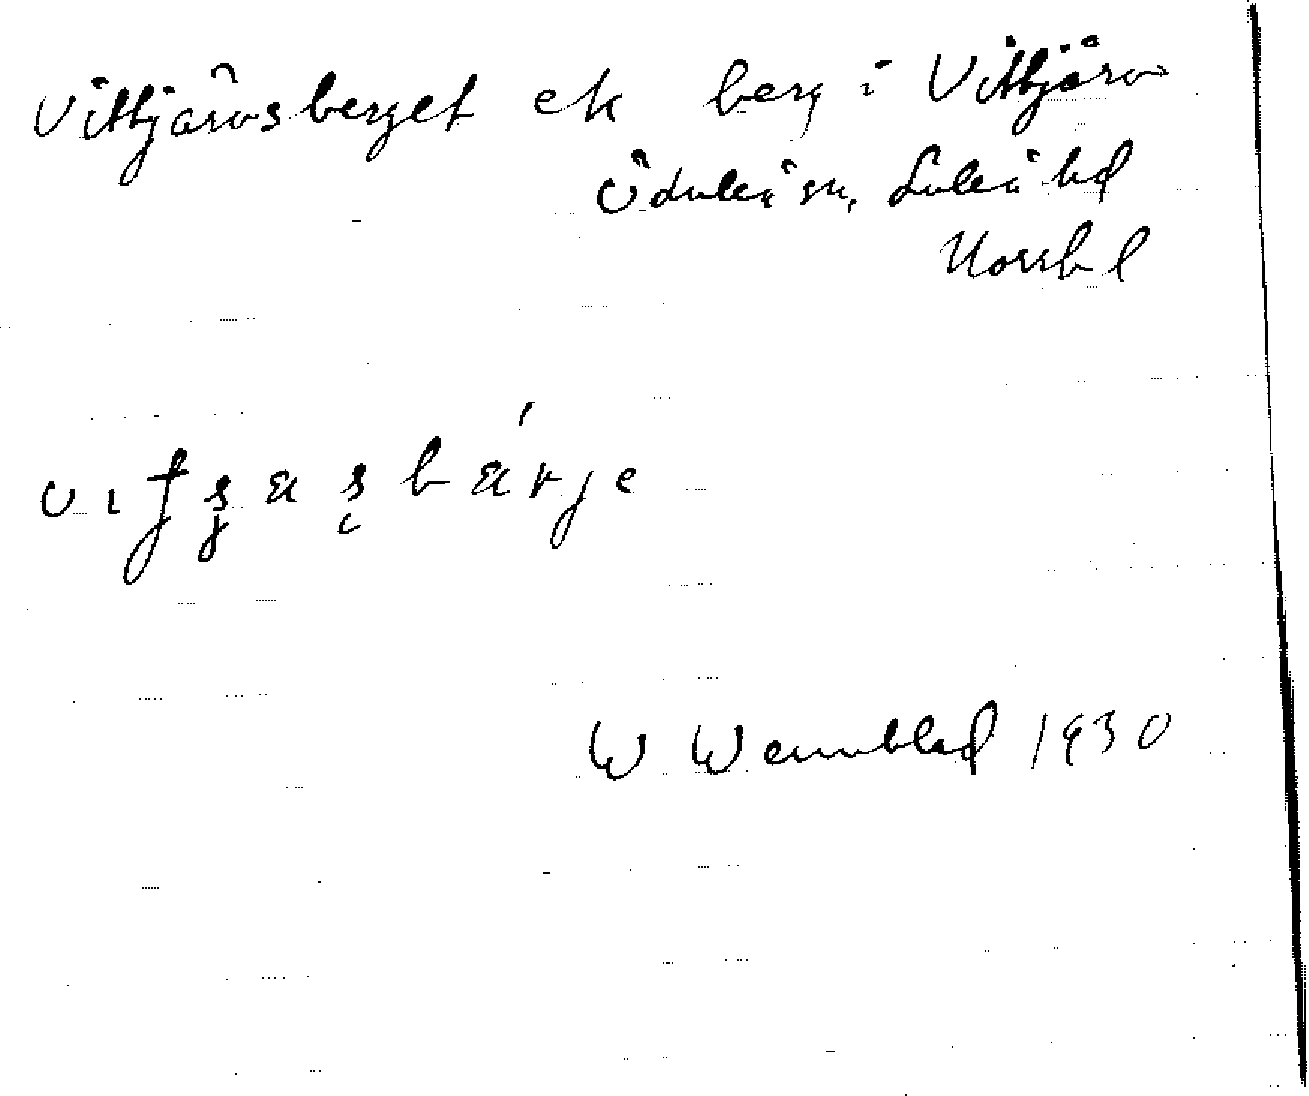 Vittjärvsberget ett berg i Vittjärv
Överluleå sn, Luleå hd
Norrb l
W Wennblad 1930